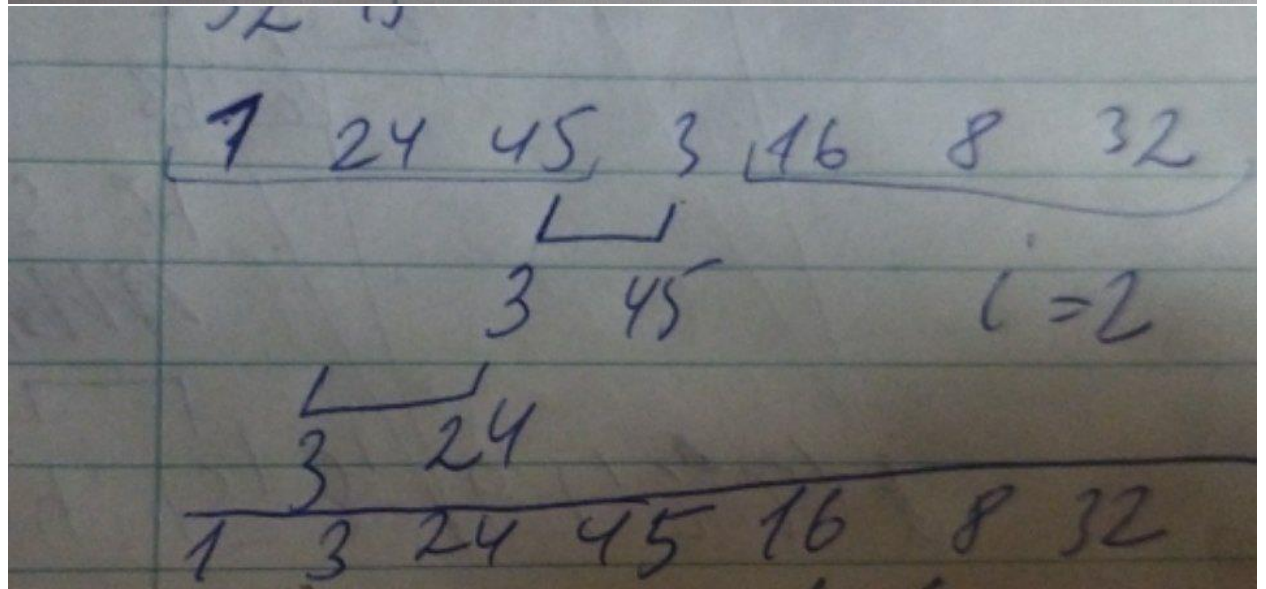 1 24 45 3 16 8 32
3 45 i = 2
3 24
1 3 24 45 16 8 32